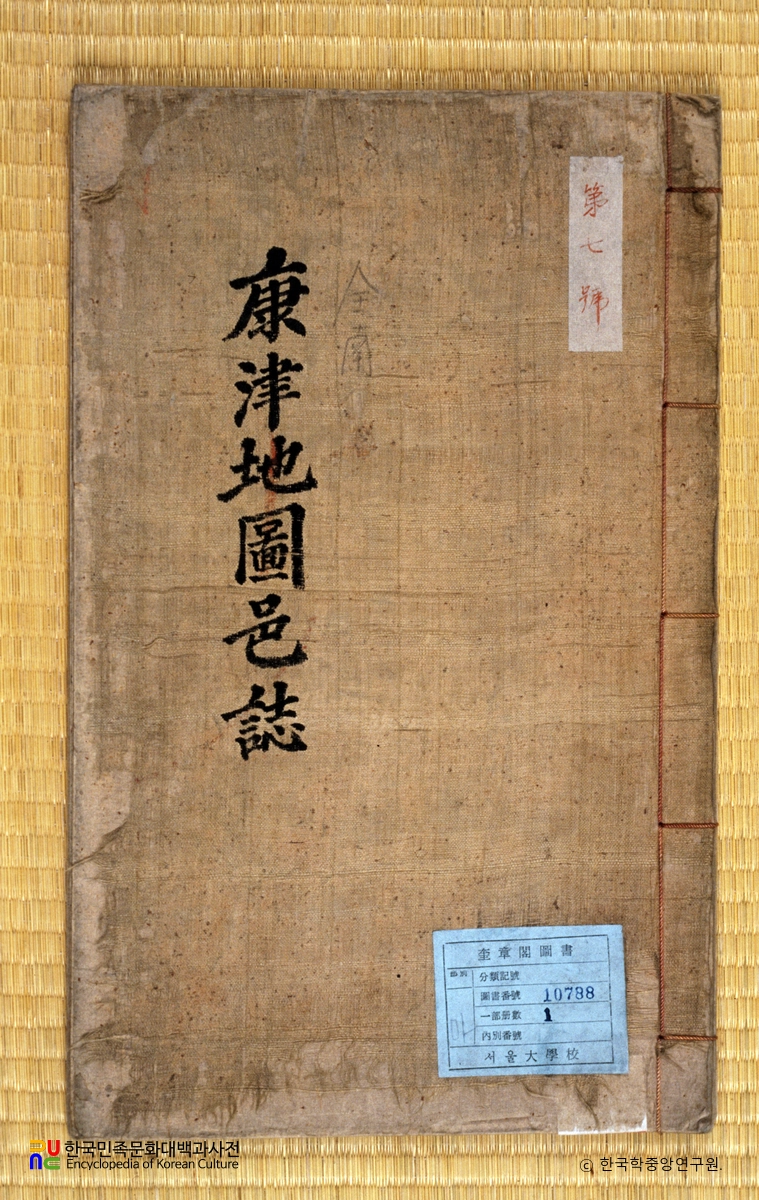 第七號
全南
康津地圖邑誌
奎章閣圖書
部別
分類記號
圖書番號 10788
一部册數 1
內別番號
서울大學校
한국민족문화대백과사전
Encyclopedia of Korean Culture
© 한국학중앙연구원.